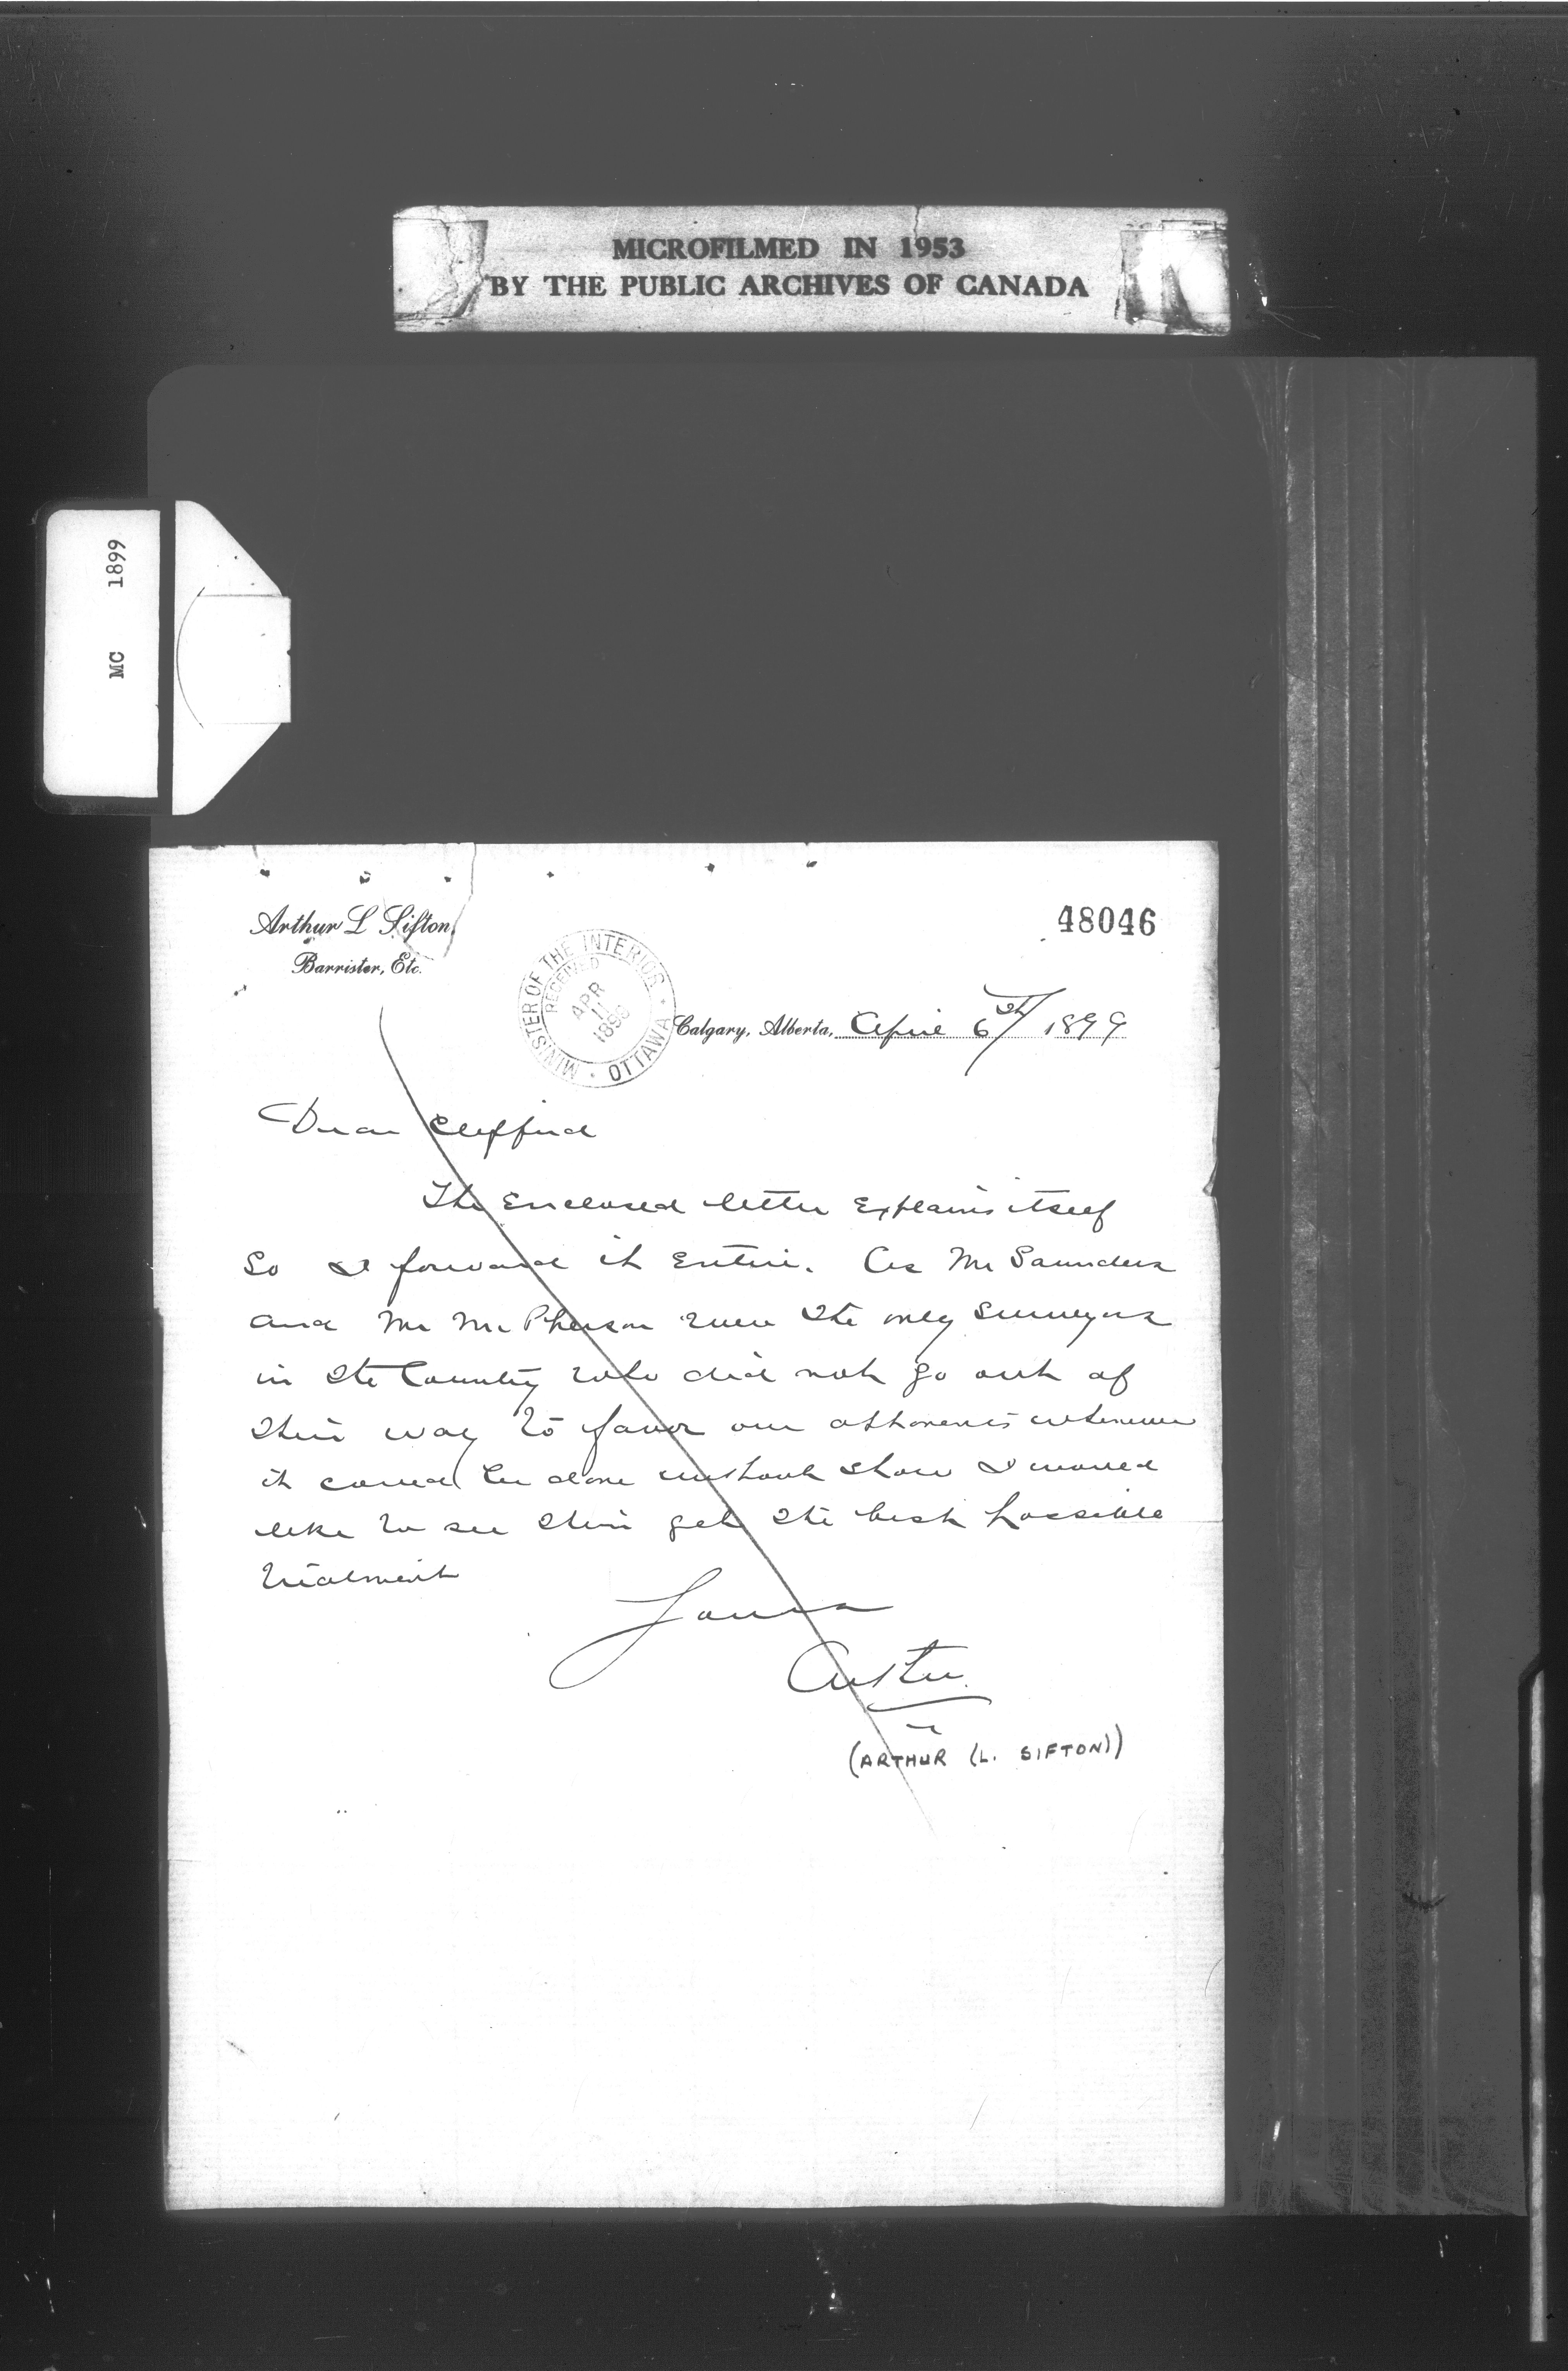 MICROFILMED IN 1953
BY THE PUBLIC ARCHIVES OF CANADA
MC 1899
48046
Arthur L Sifton,
Barrister, Etc.
MINISTER OF THE INTERIOR
RECEIVED
APR
11
1899
OTTAWA
Calgary, Alberta, April 6th 1899
Dear Clifford
The Enclosed letter Explains itself
So I forward it Entire. As Mr Saunders
and Mr McPherson were the only Surveyors
in the Country who did not go out of
their way to favor our opponents whenever
it could be done without show I would
like to see them get the best possible
treatment
Yours
(ARTHUR (L. SIFTON))